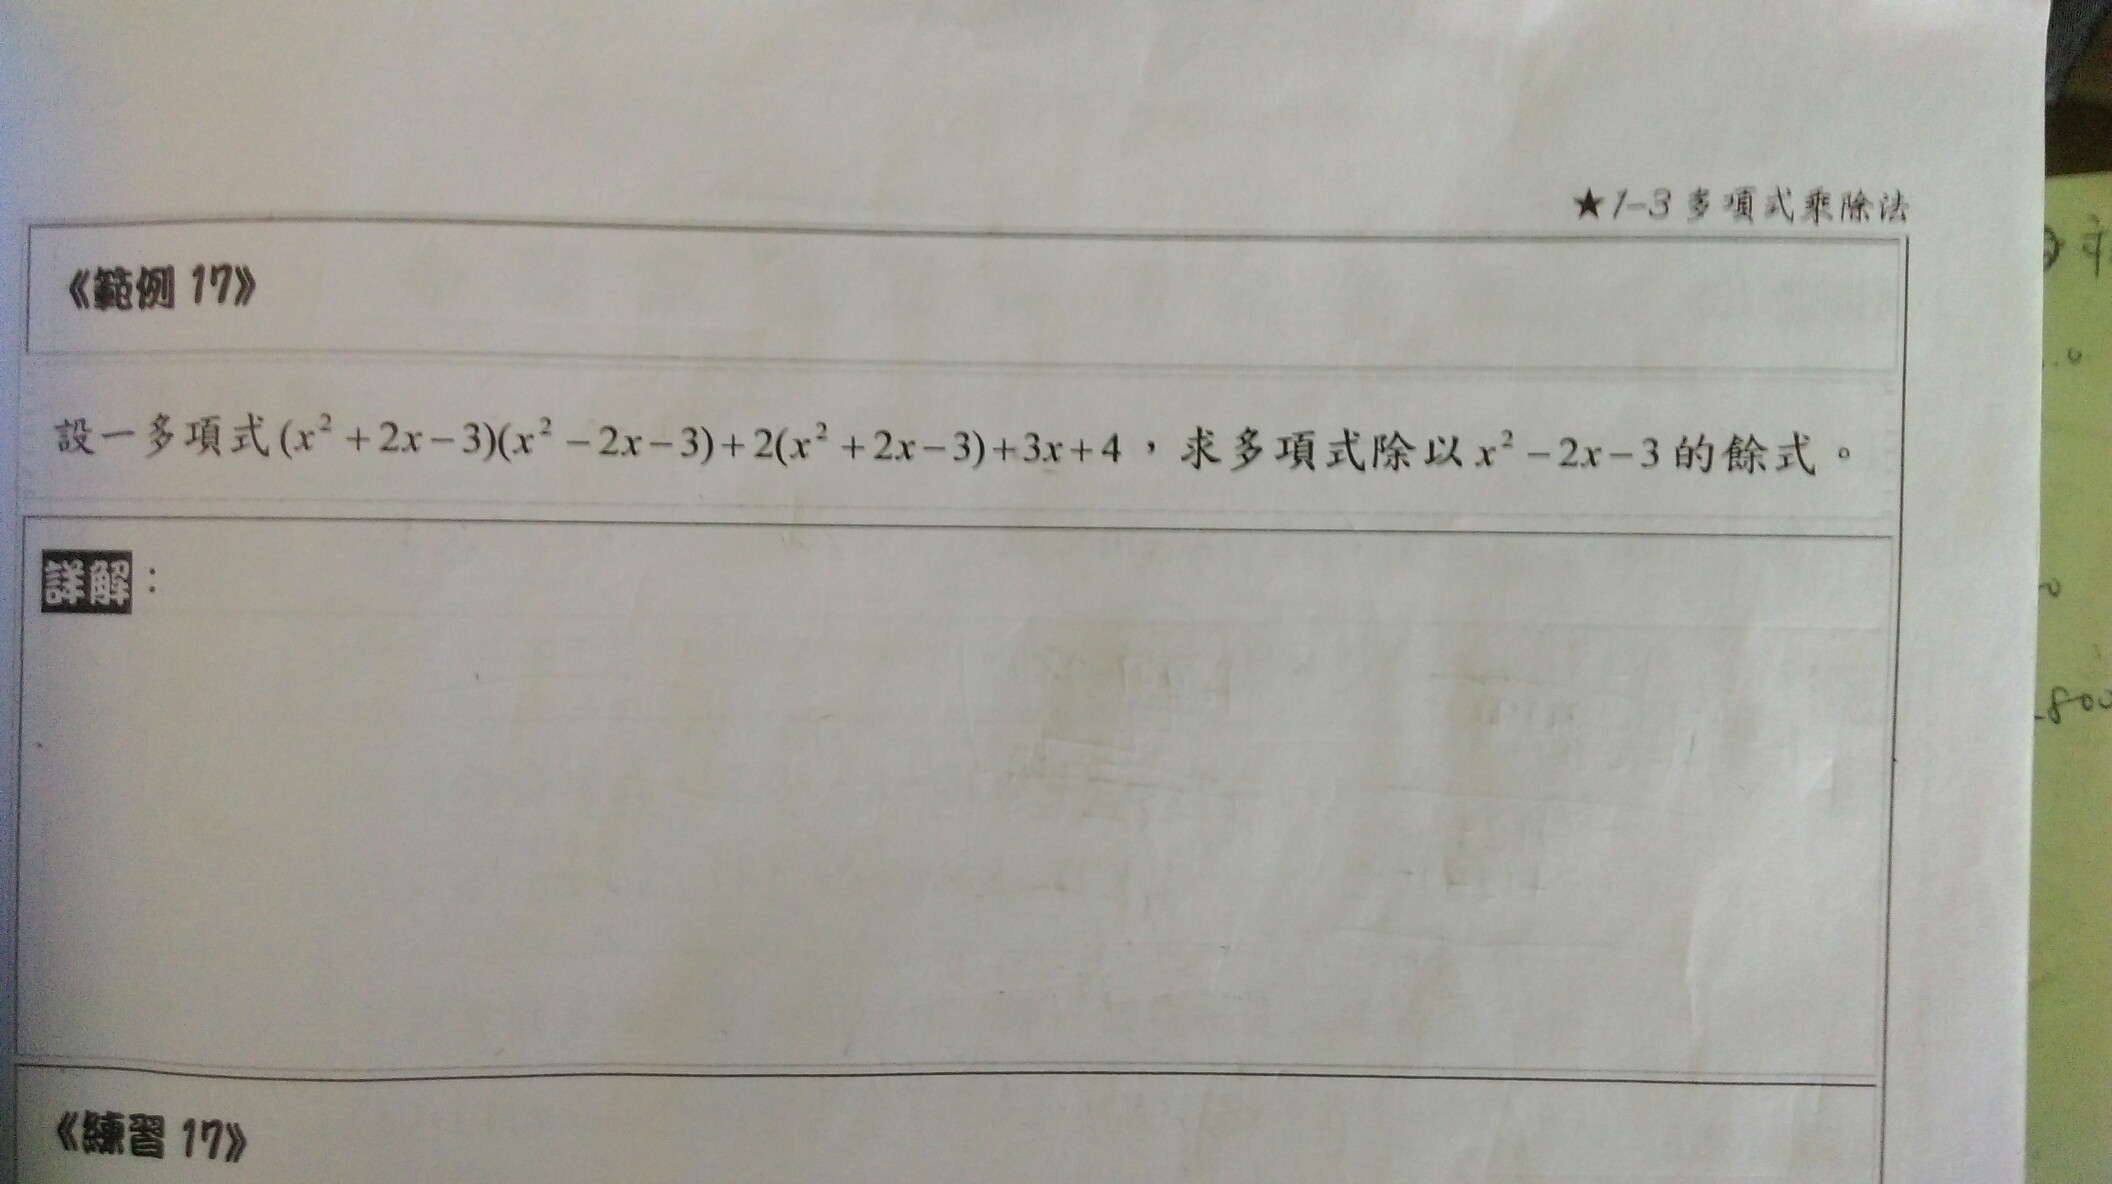 ★1-3 多項式乘除法
《範例 17》
設一多項式(x²+2x-3)(x²-2x-3)+2(x²+2x-3)+3x+4,求多項式除以x²-2x-3的餘式。
詳解:
800
《練習 17》